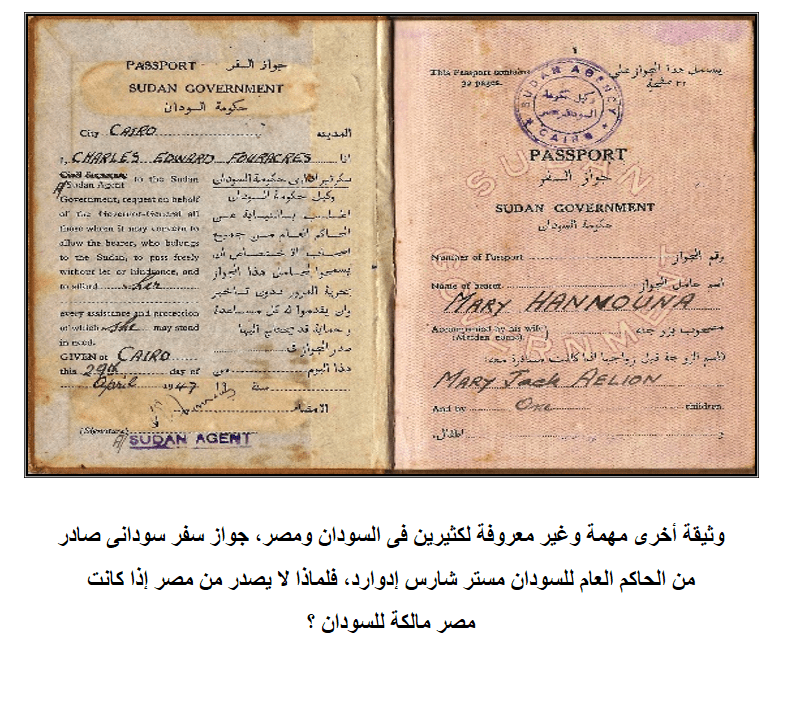 PASSPORT جواز السفر
SUDAN GOVERNMENT
حكومة السودان
City CAIRO المدينة
I, CHARLES EDWARD FOURACRES انا
Civil Secretary to the Sudan سكرتير اداري حكومة السودان
A/Sudan Agent
Government, request on behalf وكيل حكومة السودان
of the Governor-General all
those whom it may concern to الحاكم العام من جميع
allow the bearer, who belongs
to the Sudan, to pass freely يسمحوا لحامل هذا الجواز
without let or hindrance, and بحرية المرور بدون تاخير
to afford her وان يقدموا له كل مساعدة
every assistance and protection
of which she may stand وحماية قد يحتاج اليها
in need. صدر الجواز في
GIVEN at CAIRO
this 29th day of هذا اليوم من
April 1947 سنة ١٩
الامضاء
(Signature)
A/ SUDAN AGENT
١
This Passport contains يشتمل هذا الجواز على
32 pages. ٣٢ صفحة
SUDAN AGENCY
وكيل حكومة
السودان بمصر
CAIRO
PASSPORT
جواز السفر
SUDAN GOVERNMENT
حكومة السودان
Number of Passport رقم الجواز
Name of bearer اسم حامل الجواز
MARY HANMOUNA
Accompanied by his wife مصحوب بزوجته
(Maiden name)
(اسم الزوجة قبل زواجها اذا كانت مسافرة معه)
MARY Jack AELION
And by One children.
و اطفال.
وثيقة أخرى مهمة وغير معروفة لكثيرين فى السودان ومصر، جواز سفر سودانى صادر
من الحاكم العام للسودان مستر شارس إدوارد، فلماذا لا يصدر من مصر إذا كانت
مصر مالكة للسودان ؟